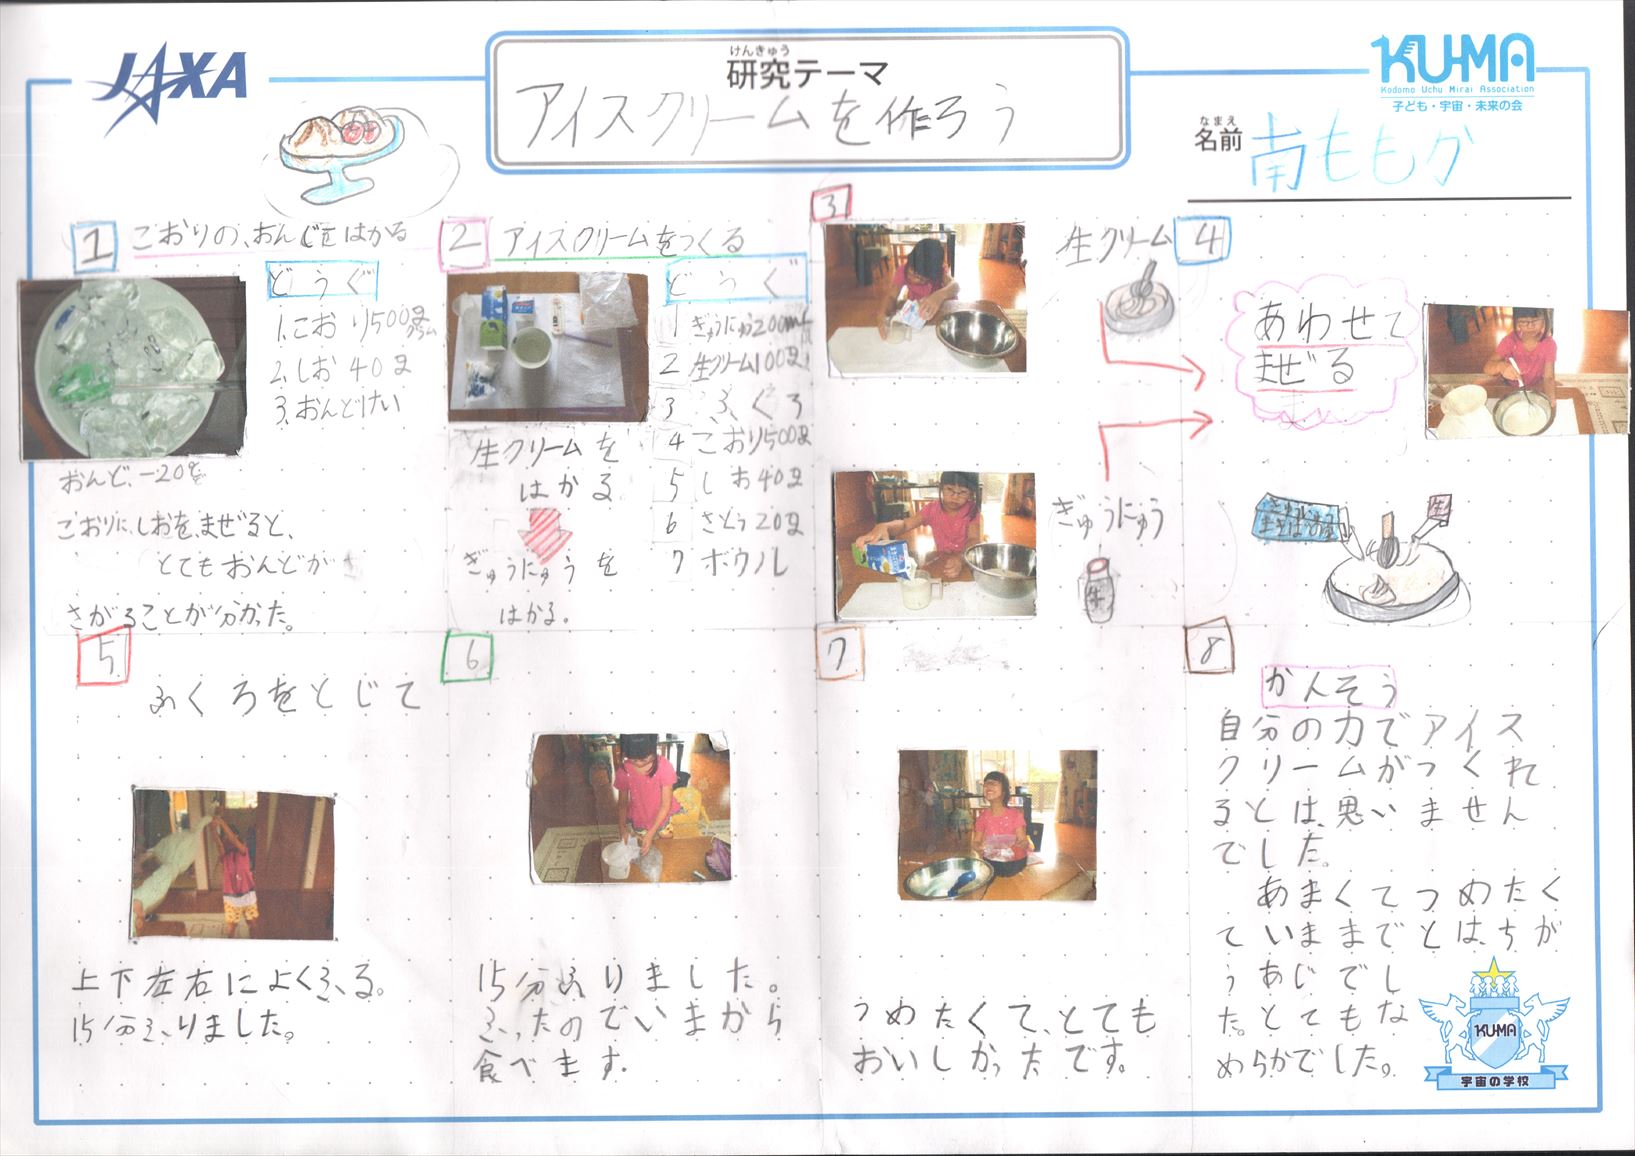 JAXA
けんきゅう
研究テーマ
アイスクリームを作ろう
KUMA
Kodomo Uchu Mirai Association
子ども・宇宙・未来の会
なまえ
名前
南ももか
1
こおりの、おんどをはかる
どうぐ
1.こおり500g
グラム
2.しお40g
3.おんどけい
おんど、-20℃
こおりに、しおを、まぜると、
とてもおんどが
さがることが分かった。
2
アイスクリームをつくる
どうぐ
1 ぎゅうにゅう200mL
2 生クリーム100g
3 ふくろ
4 こおり500g
5 しお40g
6 さとう20g
7 ボウル
生クリームを
はかる
ぎゅうにゅうを
はかる。
3
生クリーム
ぎゅうにゅう
生
4
あわせて
まぜる
生
5
ふくろをとじて
上下左右によくふる。
15分ふりました。
6
15分ふりました。
ふったのでいまから
食べます。
7
つめたくて、とても
おいしかったです。
8
かんそう
自分の力でアイス
クリームがつくれ
るとは、思いません
でした。
あまくてつめたく
ていままでとは、ちが
うあじでし
た。とてもな
めらかでした。
KUMA
宇宙の学校